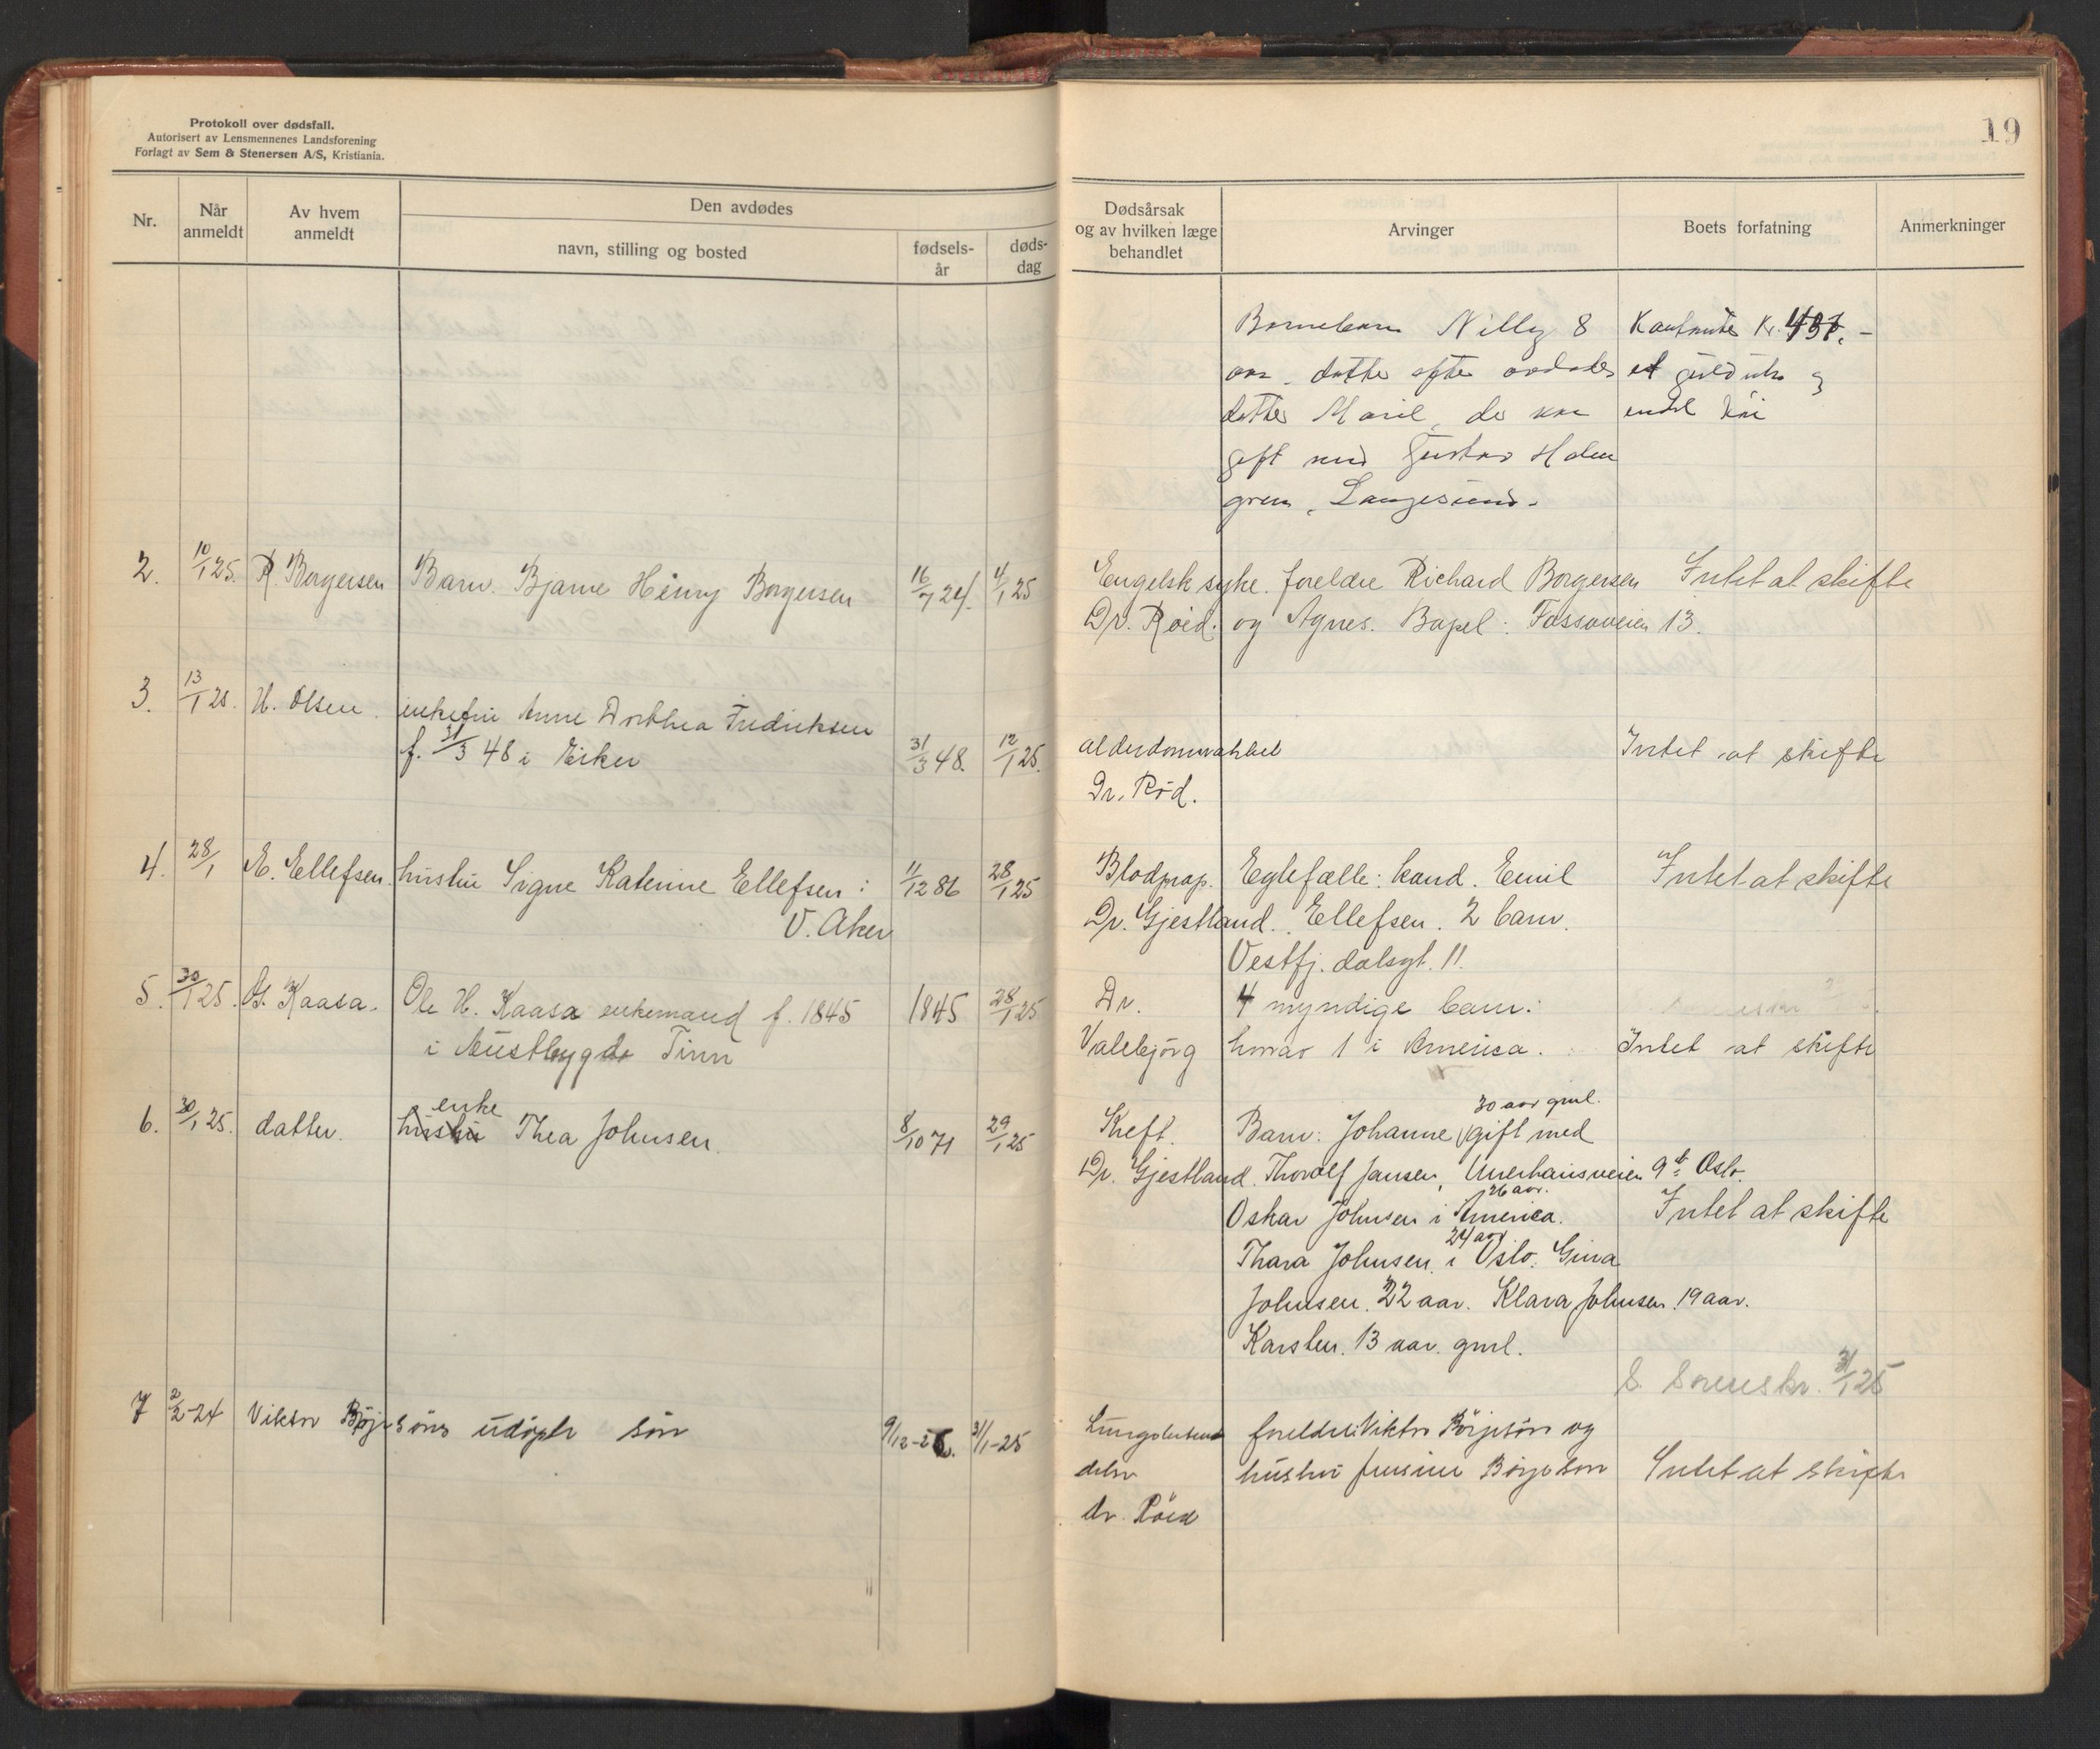 Protokoll over dødsfall.
Autorisert av Lensmennenes Landsforening
Forlagt av Sem & Stenersen A/S, Kristiania.
19
Nr.
Når anmeldt
Av hvem anmeldt
Den avdødes
navn, stilling og bosted
fødsels-år
døds-dag
Dødsårsak og av hvilken læge behandlet
Arvinger
Boets forfatning
Anmerkninger
Barnebarn Nilly 8 Kontanter Kr. 437.-
aar, datter efter avdødes et guldur og
datter Maril, der var endel
gift med Gustav Holm
gren, Langesund.
2. 10/1 25. R. Borgersen Barn. Bjarne Henry Borgersen 16/7 24. 4/1 25 Engelsk syke. foreldre Richard Borgersen Intet at skifte
Dr. Røed. og Agnes. Bopel: Fossoveien 13.
3. 13/1 25. H. Olsen. enkefru Anne Dorthea Fredriksen
f. 31/3 48 i Eiker 31/3 48. 12/1 25. alderdomsvakhet Intet at skifte
Dr. Rød.
4. 28/1 E. Ellefsen. hustru Signe Katerine Ellefsen: 11/12 86 28/1 25 Blodprop. Egtefælle: kand. Emil Intet at skifte
V. Aker Dr. Gjestland. Ellefsen. 2 barn.
Vestfj. dalsgt. 11.
5. 30/1 25. O. Kaasa. Ole H. Kaasa enkemand f. 1845 1845 28/1 25 Dr. 4 myndige barn:
i Austbygde Tinn Valebjörg hvorav 1 i America. Intet at skifte
6. 30/1 25. datter. hustru enke Thea Johnsen. 8/10 71 29/1 25 Kreft. Barn: Johanne 30 aar gml. gift med
Dr. Gjestland. Thorolf Jansen, Uelandsveien 9 b Oslo.
Oskar Johnsen i America. 26 aar. Intet at skifte
Thara Johnsen. i Oslo. 24 aar Gina
Johnsen. 22 aar. Klara Johnsen. 19 aar.
Karsten. 13 aar. gml.
31/1 25
7 2/2-24 Viktor Börjesöns udöpte sön 9/12-24. 31/1-25 foreldre: Viktor Börjesön og
hustru Jensine Börjeson Intet at skifte
dr. Röed